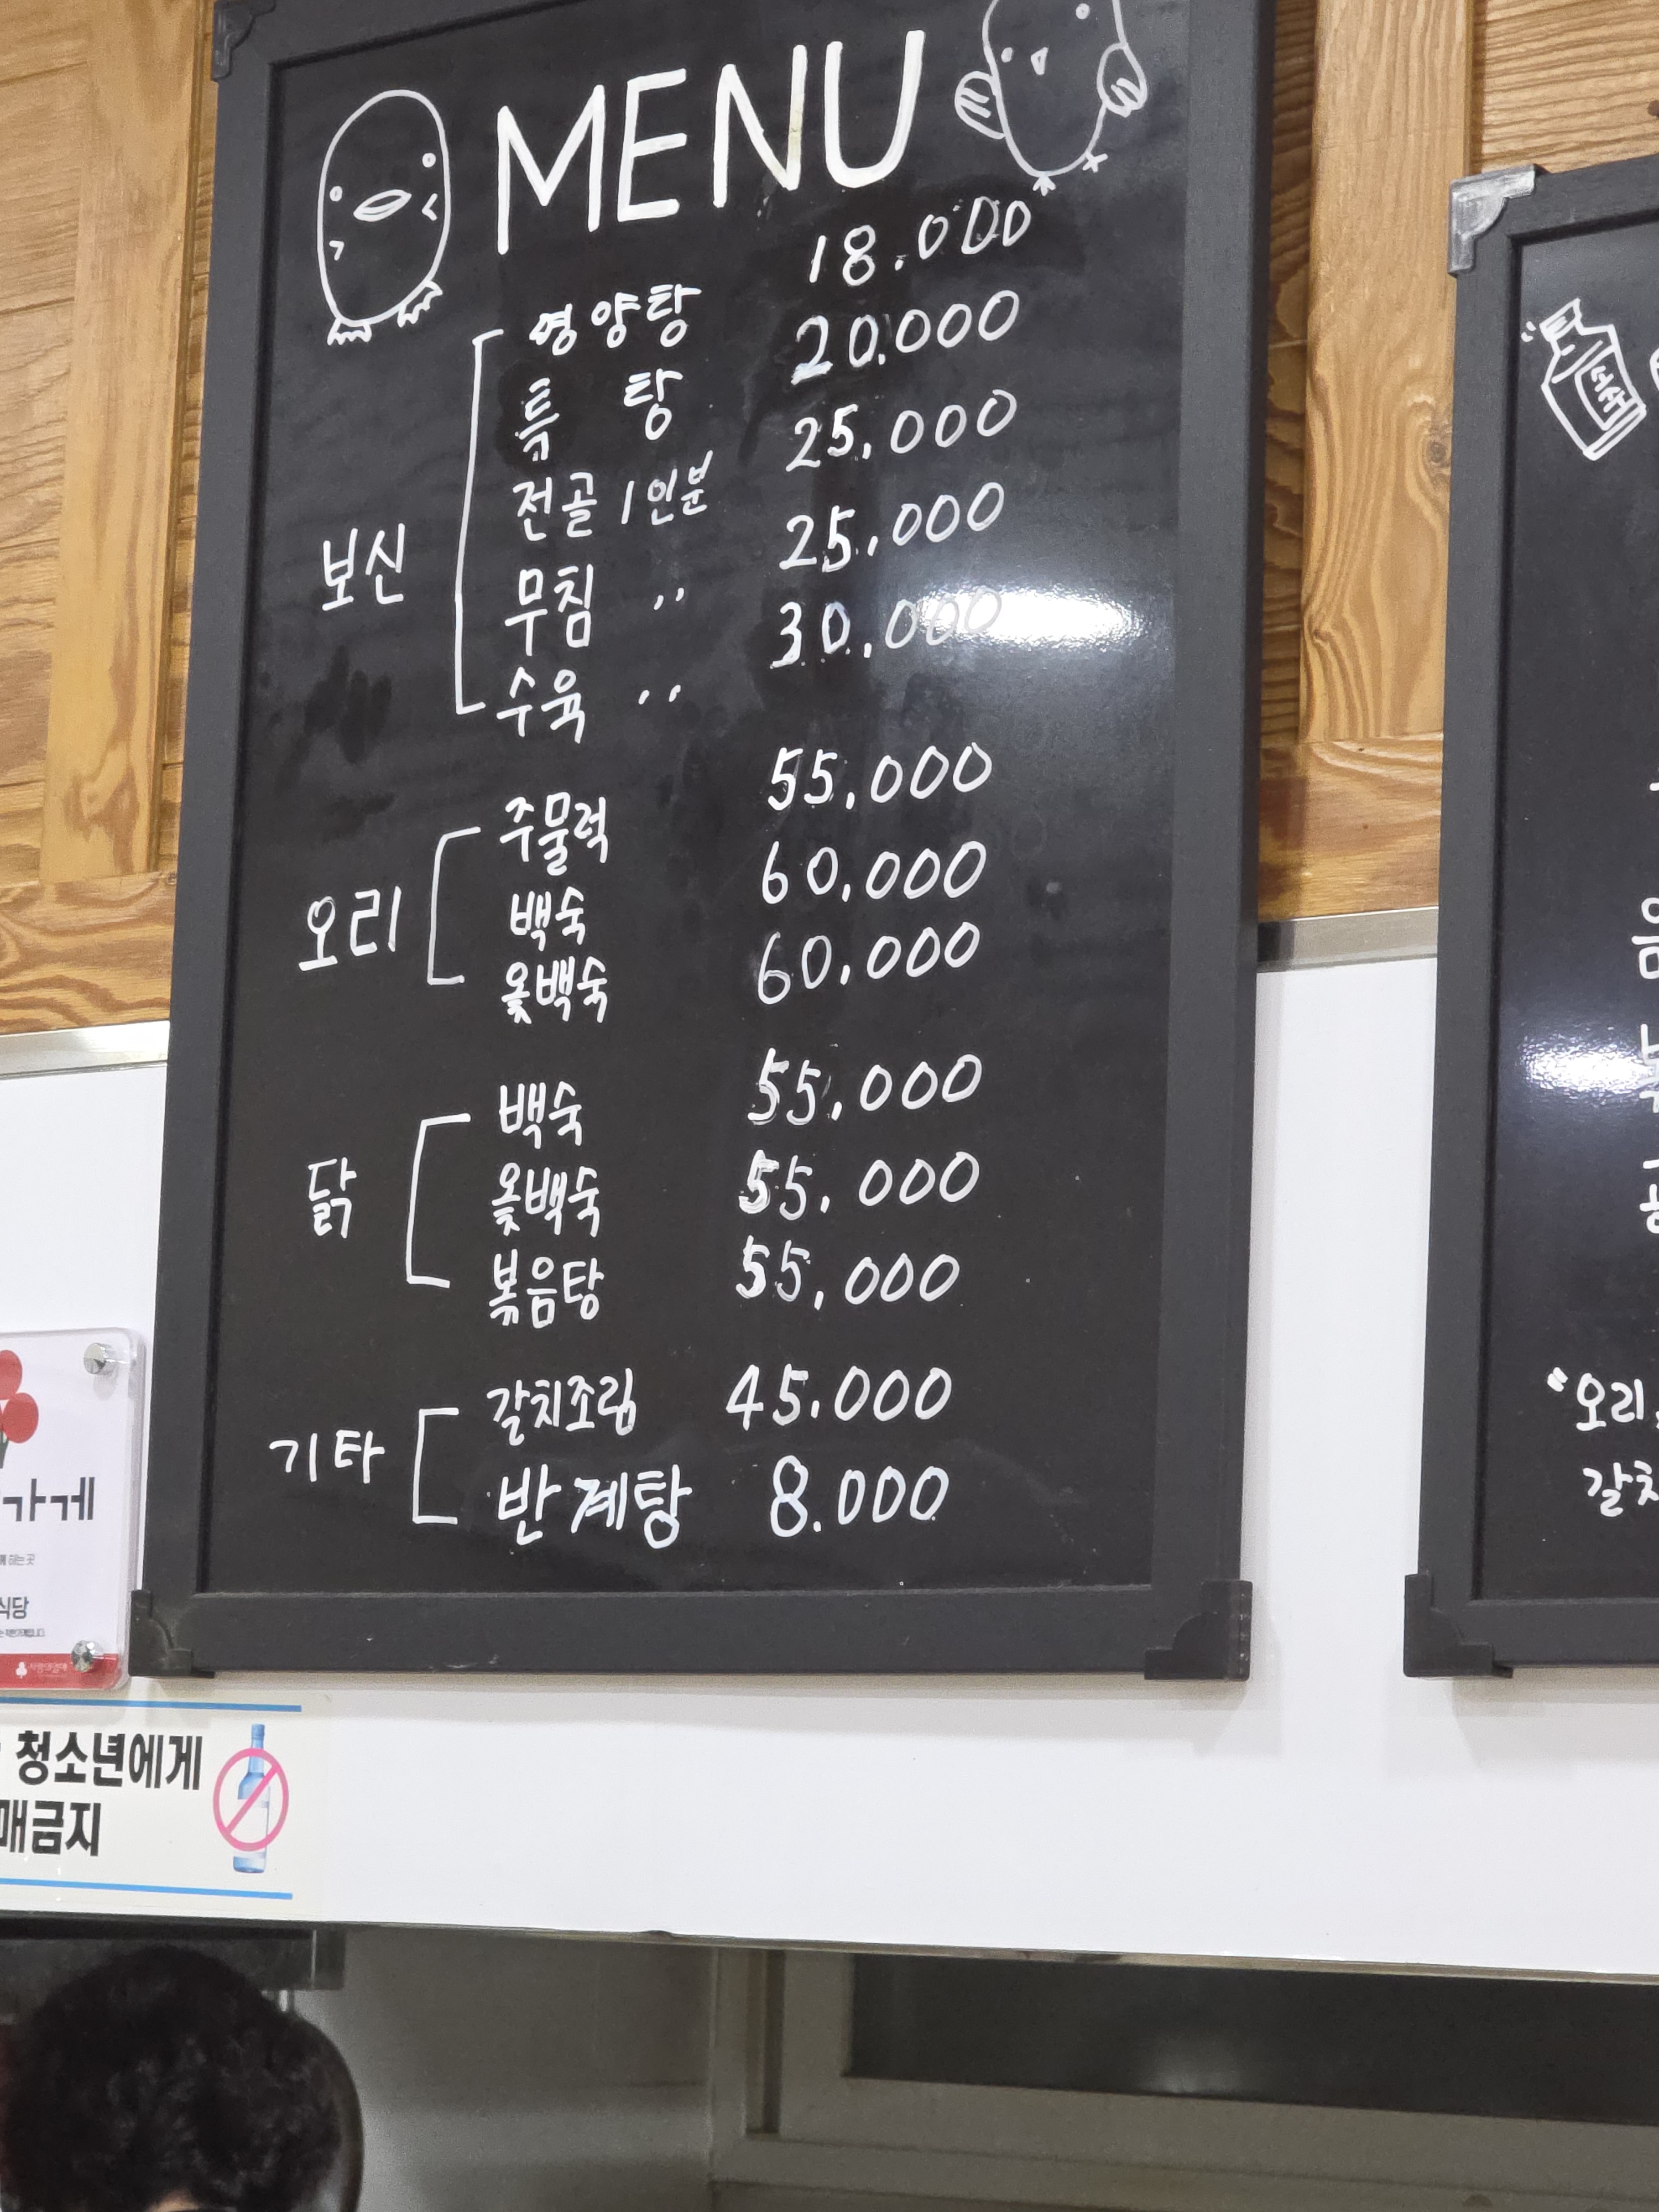 MENU
영양탕 18.000
특 탕 20.000
전골 1인분 25,000
보신
무침 〃 25.000
수육 〃 30.000
주물럭 55,000
오리
백숙 60,000
옻백숙 60,000
백숙 55,000
닭
옻백숙 55,000
볶음탕 55,000
기타
갈치조림 45.000
반계탕 8.000
소주
"오리,
갈치
가게
하는 곳
식당
청소년에게
매금지